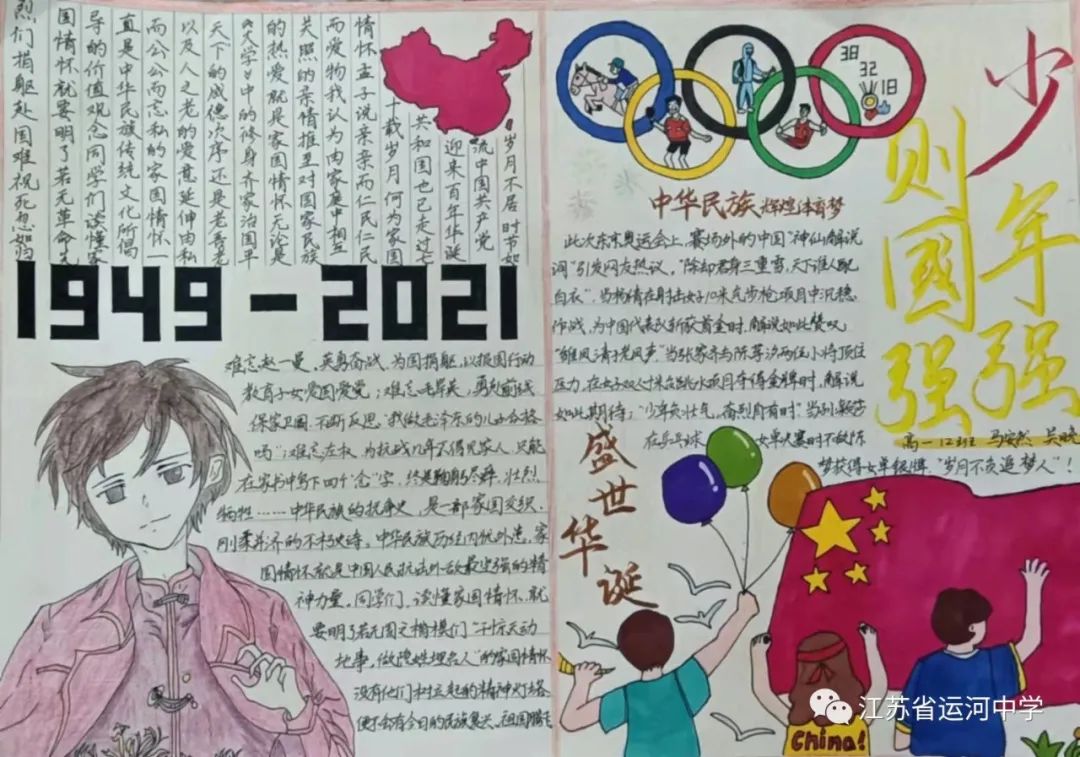 岁月不居 时节如
流中国共产党
迎来百年华诞
共和国也已走过七
十载岁月何为家国
情怀孟子说亲亲而仁民仁民
而爱物我认为由家庭中相互
关照的亲情推至对国家民族
的热爱就是家国情怀无论是
《大学》中的修身齐家治国平
天下的成德次序还是老吾老
以及人之老的爱延伸由私
而公公而忘私的家国情怀一
直是中华民族传统文化所倡
导的价值观念同学们读懂家
国情怀就要明了若无革命先
烈们捐躯赴国难视死忽如
1949-2021
难忘赵一曼,英勇奋战,为国捐躯,以报国行动
教育子女爱国爱党;难忘毛岸英,勇赴前线
保家卫国,不断反思"我做毛泽东的儿子合格
吗";难忘左权,为抗战几年不得见家人,只能
在家书中写下四个"念"字,终是鞠躬尽瘁,壮烈
牺牲……中华民族的抗争史,是一部家国交织、
刚柔并济的不朽史诗。中华民族历经内忧外患,家
国情怀就是中国人民抗击外敌最坚强的精
神力量。同学们,读懂家国情怀,就
要明了若无国之楷模们"干惊天动
地事,做隐姓埋名人"的家国情怀
没有他们树立起的精神灯塔
便不会有今日的民族复兴、祖国腾飞
38
32
118
中华民族 辉煌体育梦
此次东京奥运会上,赛场外的中国"神仙解说
词"引发网友热议,"除却君身三重雪,天下谁人配
白衣",当杨倩在射击女子10米气步枪项目中沉稳
作战,为中国代表队斩获首金时,解说如此赞叹
"雏凤清于老凤声"当张家齐与陈芋汐两位小将顶住
压力,在女子双人10米台跳水项目夺得金牌时,解说
如此期待;"少年负壮气,奋烈自有时"当孙颖莎
在乒乓球女单决赛时不放弃
梦获得女单银牌,"岁月不负追梦人"!
少年强
则国强
高一12班 马安然 吴晓
盛世华诞
China!
江苏省运河中学